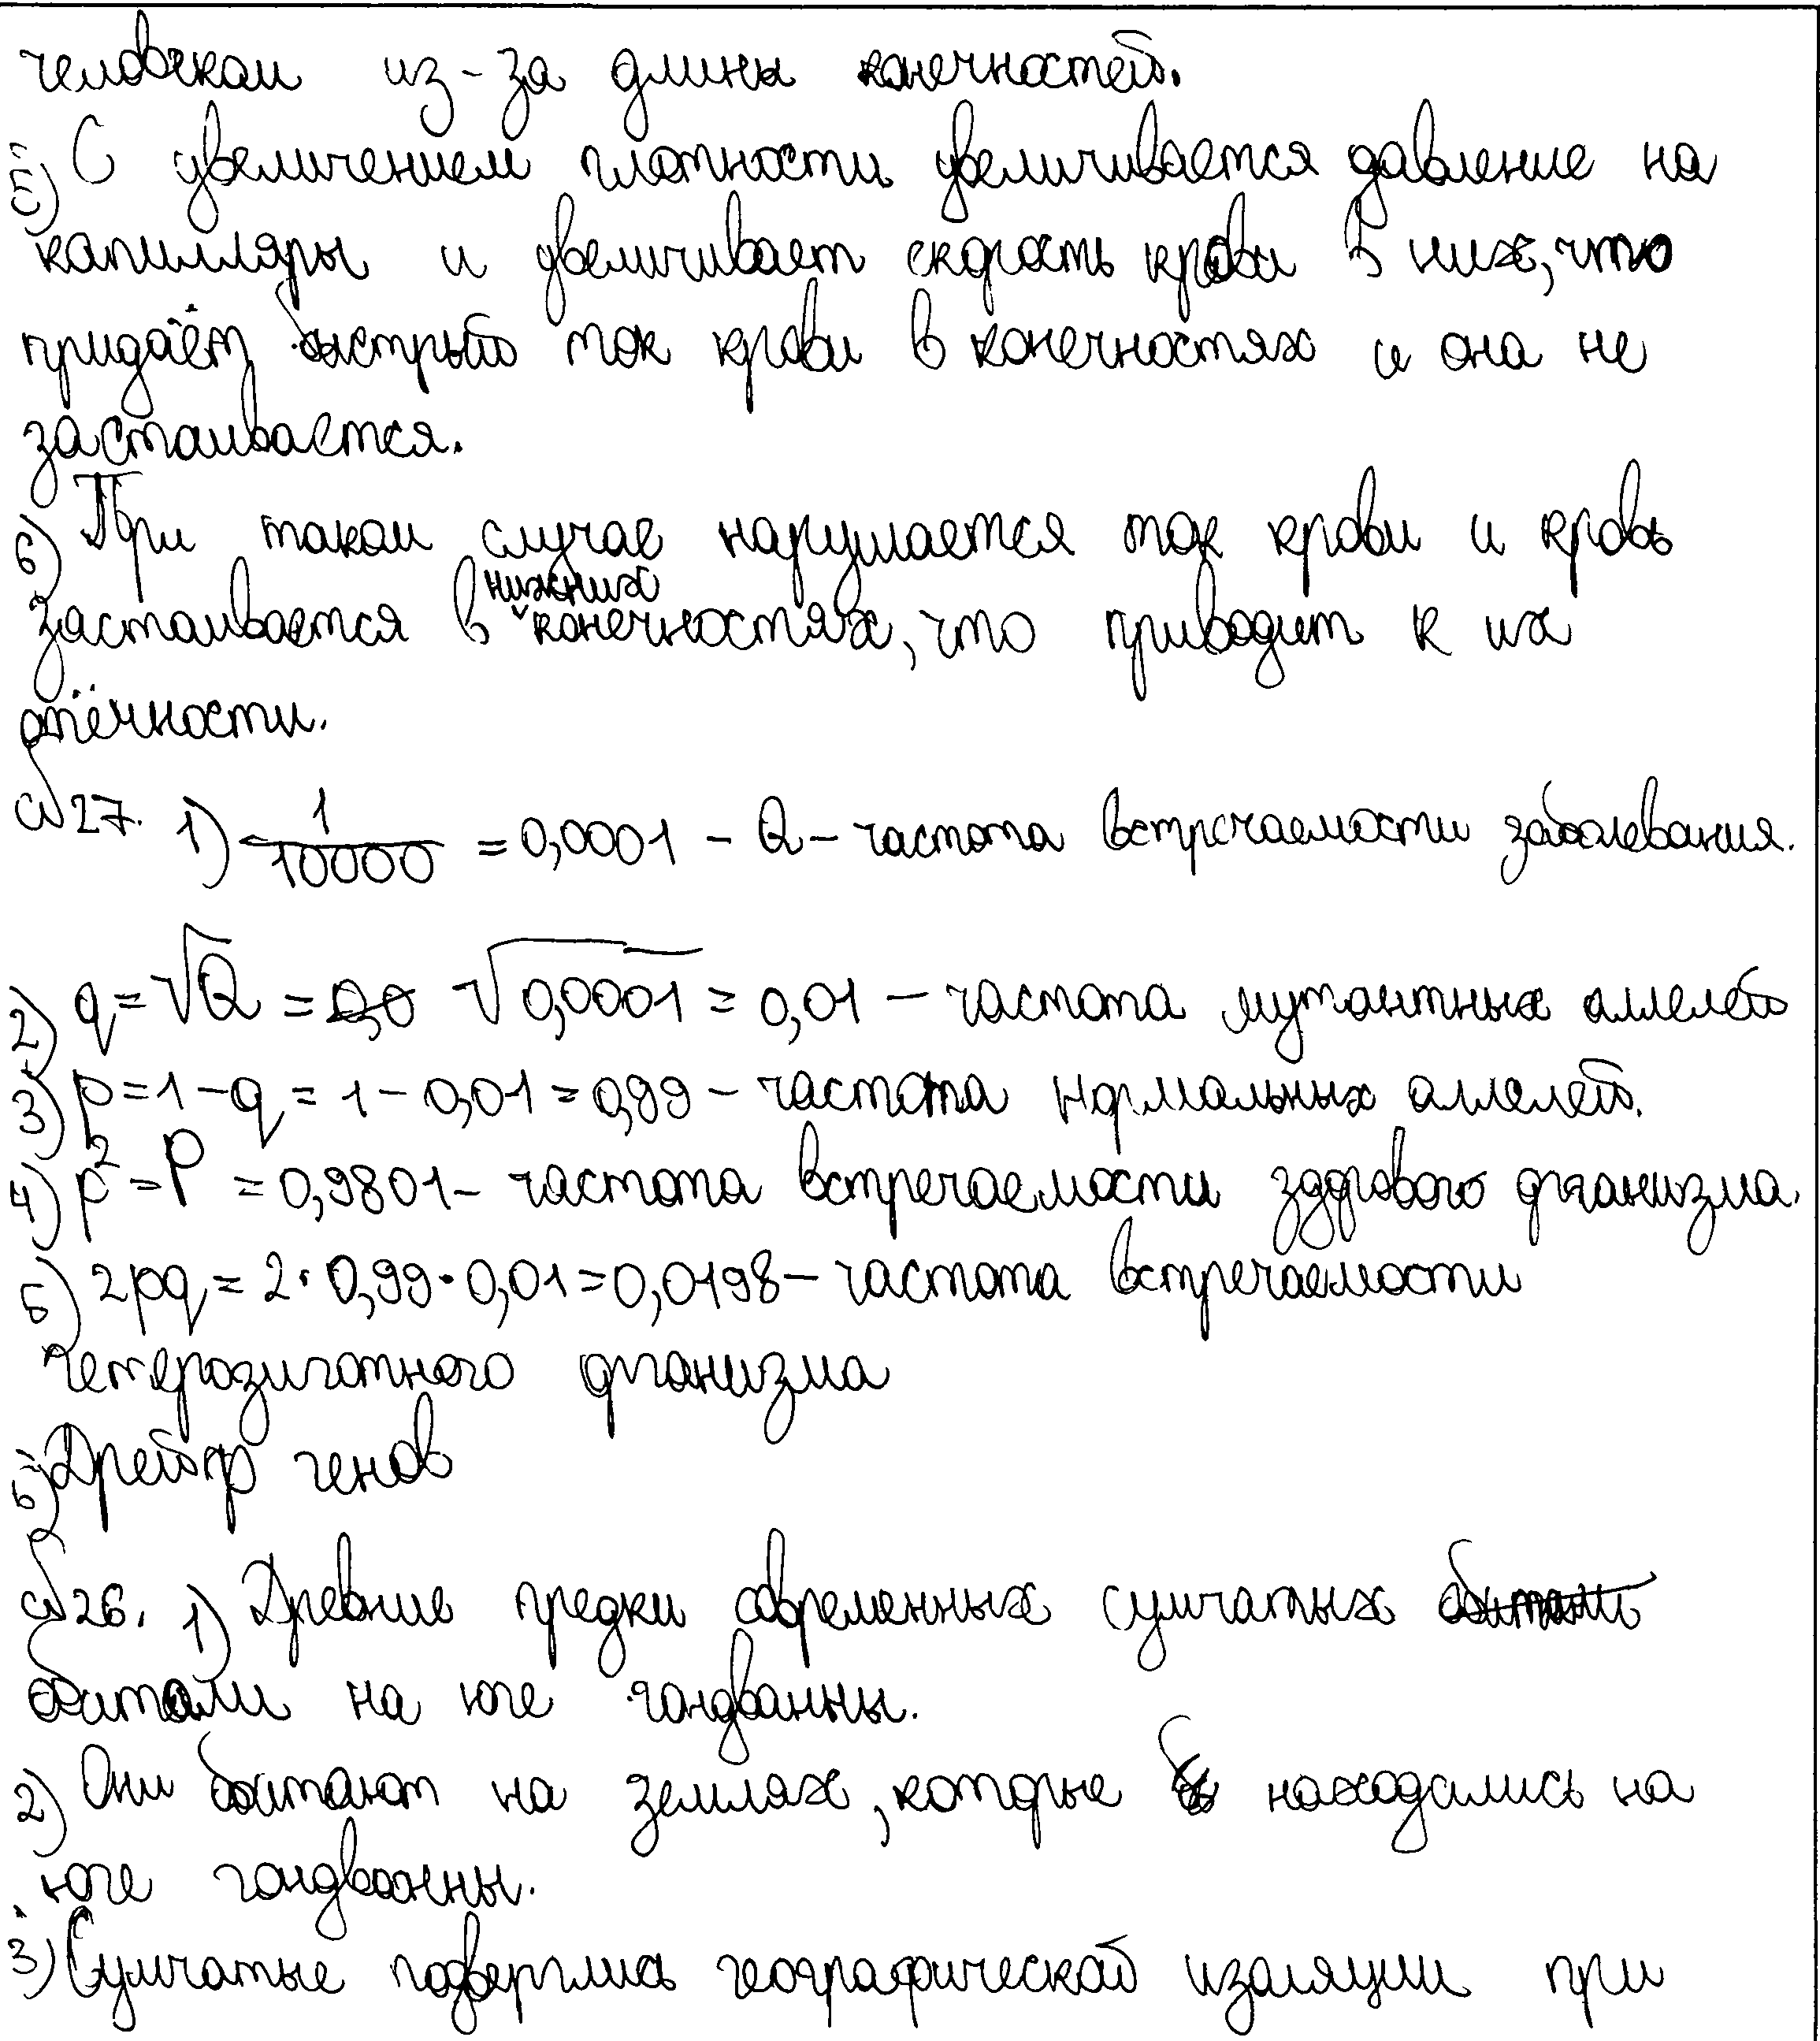 человеком из-за длины конечностей.
5) С увеличением плотности увеличивается давление на
капилляры и увеличивает скорость крови в них, что
придаёт быстрый ток крови в конечностях и она не
застаивается.
6) При таком случае нарушается ток крови и кровь
застаивается в нижних конечностях, что приводит к их
отёчности.
№27. 1) 1/10000 = 0,0001 – Q – частота встречаемости заболевания.
2) q = √Q = √0,0001 = 0,01 – частота мутантных аллелей
3) p = 1 – q = 1 – 0,01 = 0,99 – частота нормальных аллелей.
4) p² = P = 0,9801 – частота встречаемости здорового организма.
5) 2pq = 2·0,99·0,01 = 0,0198 – частота встречаемости
гетерозиготного организма
6) Дрейф генов
№26. 1) Древние предки современных сумчатых
обитали на юге гондванны.
2) Они обитают на землях, которые находились на
юге гондванны.
3) Сумчатые подверглись географической изоляции при